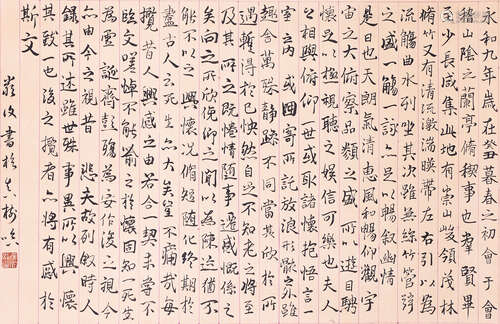 永和九年歲在癸丑暮春之初會于會
稽山陰之蘭亭脩禊事也羣賢畢
至少長咸集此地有崇山峻領茂林
脩竹又有清流激湍暎帶左右引以為
流觴曲水列坐其次雖無絲竹管弦
之盛一觴一詠亦足以暢敘幽情
是日也天朗氣清惠風和暢仰觀宇
宙之大俯察品類之盛所以遊目騁
懷足以極視聽之娛信可樂也夫人
之相與俯仰一世或取諸懷抱悟言一
室之內或因寄所託放浪形骸之外雖
趣舍萬殊靜躁不同當其欣於所
遇暫得於己怏然自足不知老之將至
及其所之既惓情隨事遷感慨係之
矣向之所欣俛仰之閒以為陳迹猶不
能不以之興懷況脩短隨化終期於
盡古人云死生亦大矣豈不痛哉每
攬昔人興感之由若合一契未嘗不
臨文嗟悼不能喻之於懷固知一死生
為虛誕齊彭殤為妄作後之視今
亦由今之視昔悲夫故列敘時人
錄其所述雖世殊事異所以興懷
其致一也後之攬者亦將有感於
斯文
書於